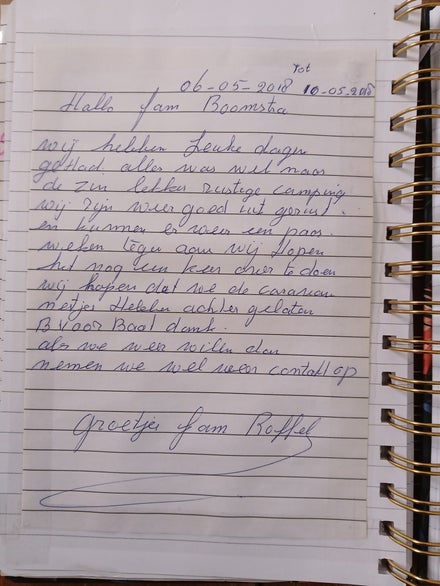 Tot
06-05-2018 10-05-2018
Hallo fam Boomstra
wij hebben Leuke dagen
gehad alles was wel naar
de zin lekker rustege camping
wij zijn weer goed uit gerust.
en kunnen er weer een paar.
weken tegen aan wij Hopen
het nog een keer over te doen
wij hopen dat we de caravan
netjes Hebben achter gelaten
B voor Baat dank.
als we weer willen dan
nemen we wel weer contakt op
Groetjes fam Roffel